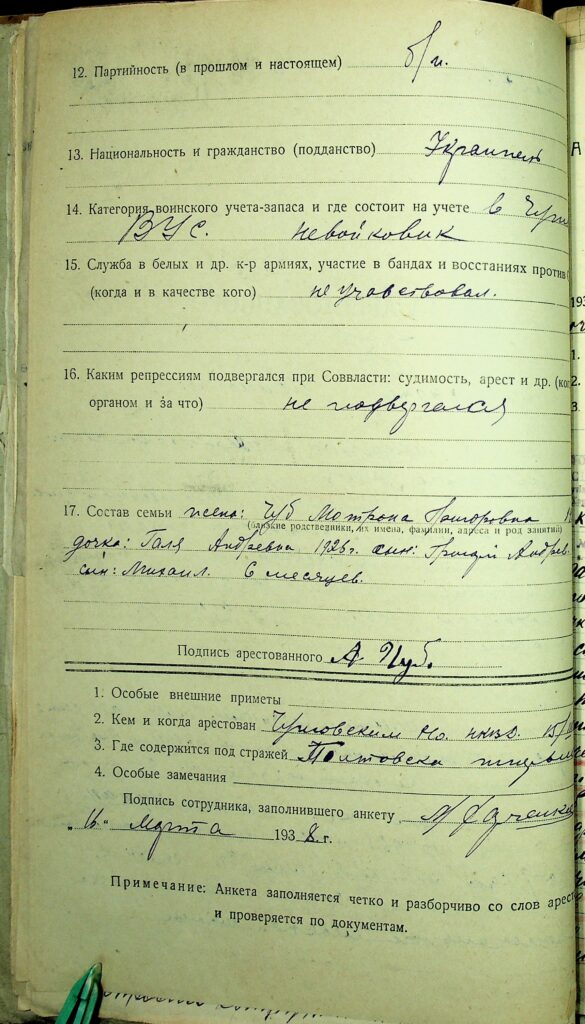 12. Партийность (в прошлом и настоящем) б/п.
13. Национальность и гражданство (подданство) Украинец
14. Категория воинского учета-запаса и где состоит на учете в
ВУС.
15. Служба в белых и др. к-р армиях, участие в бандах и восстаниях против
(когда и в качестве кого) не учавствовал.
16. Каким репрессиям подвергался при Соввласти: судимость, арест и др. (ко
органом и за что) не подвергался
17. Состав семьи жена: Чуб Мотрона
(близкие родственники, их имена, фамилии, адреса и род занятий)
дочка: Галя Андреевна сын: Андрее
сын: Михаил. 6 месяцев.
Подпись арестованного А Чуб.
1. Особые внешние приметы
2. Кем и когда арестован НКВД. 15/
3. Где содержится под стражей
4. Особые замечания
Подпись сотрудника, заполнившего анкету
Марта 1938 г.
Примечание: Анкета заполняется четко и разборчиво со слов арест
и проверяется по документам.